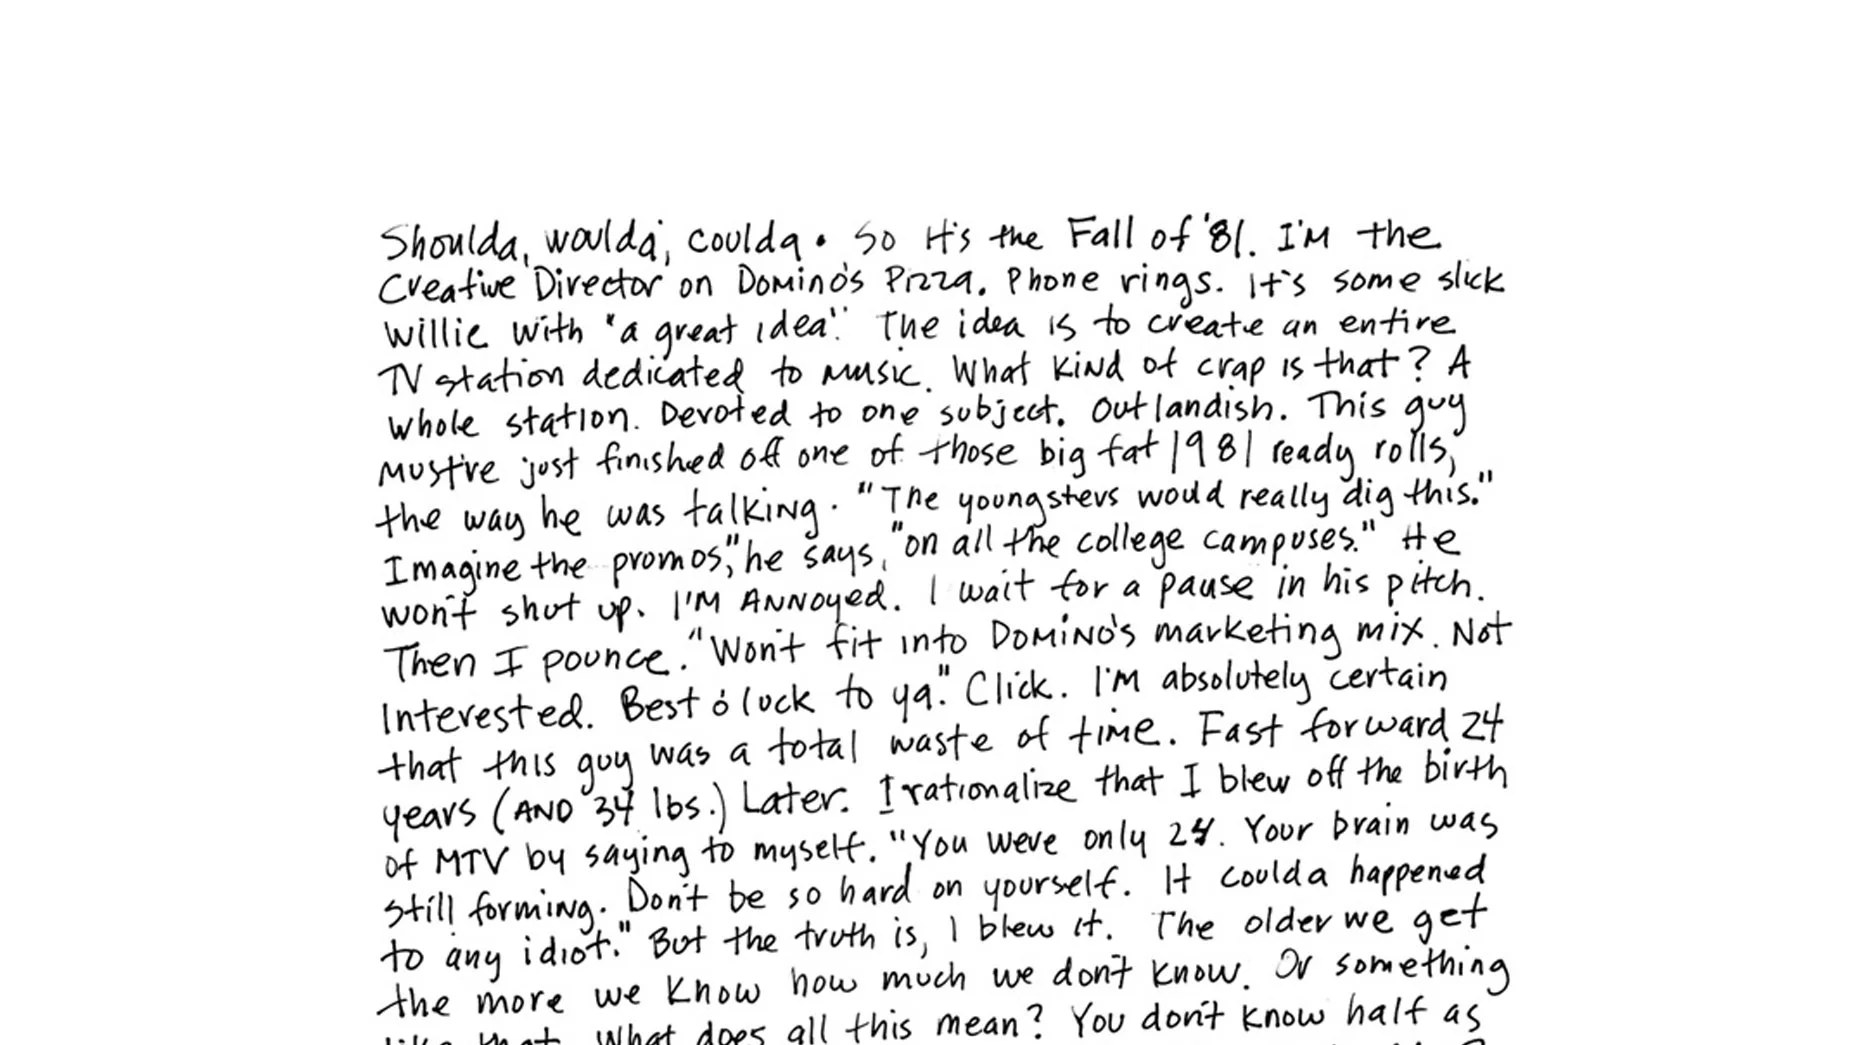 Shoulda, woulda, coulda. So it's the Fall of '81. I'm the
Creative Director on Domino's Pizza. Phone rings. It's some slick
willie with "a great idea". The idea is to create an entire
TV station dedicated to music. What kind of crap is that? A
whole station. Devoted to one subject. Outlandish. This guy
must've just finished off one of those big fat 1981 ready rolls,
the way he was talking. "The youngsters would really dig this."
Imagine the promos," he says, "on all the college campuses." He
won't shut up. I'M ANNOYED. I wait for a pause in his pitch.
Then I pounce. "Won't fit into Domino's marketing mix. Not
Interested. Best o' luck to ya." Click. I'm absolutely certain
that this guy was a total waste of time. Fast forward 24
years (AND 34 lbs.) Later. I rationalize that I blew off the birth
of MTV by saying to myself. "You were only 24. Your brain was
still forming. Don't be so hard on yourself. It coulda happened
to any idiot." But the truth is, I blew it. The older we get
the more we know how much we don't know. Or something
like that. What does all this mean? You don't know half as